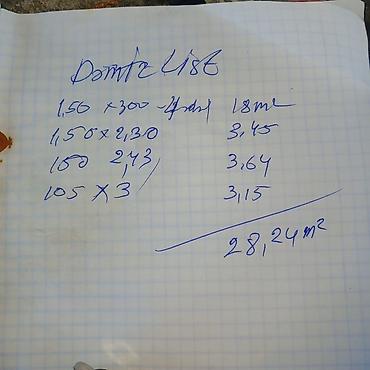 Damtz List
1,50 × 300 - 4 ədəd 18m²
1,50 × 2,30 3,45
150 2,43 3,64
105 × 3 3,15
28,24m²